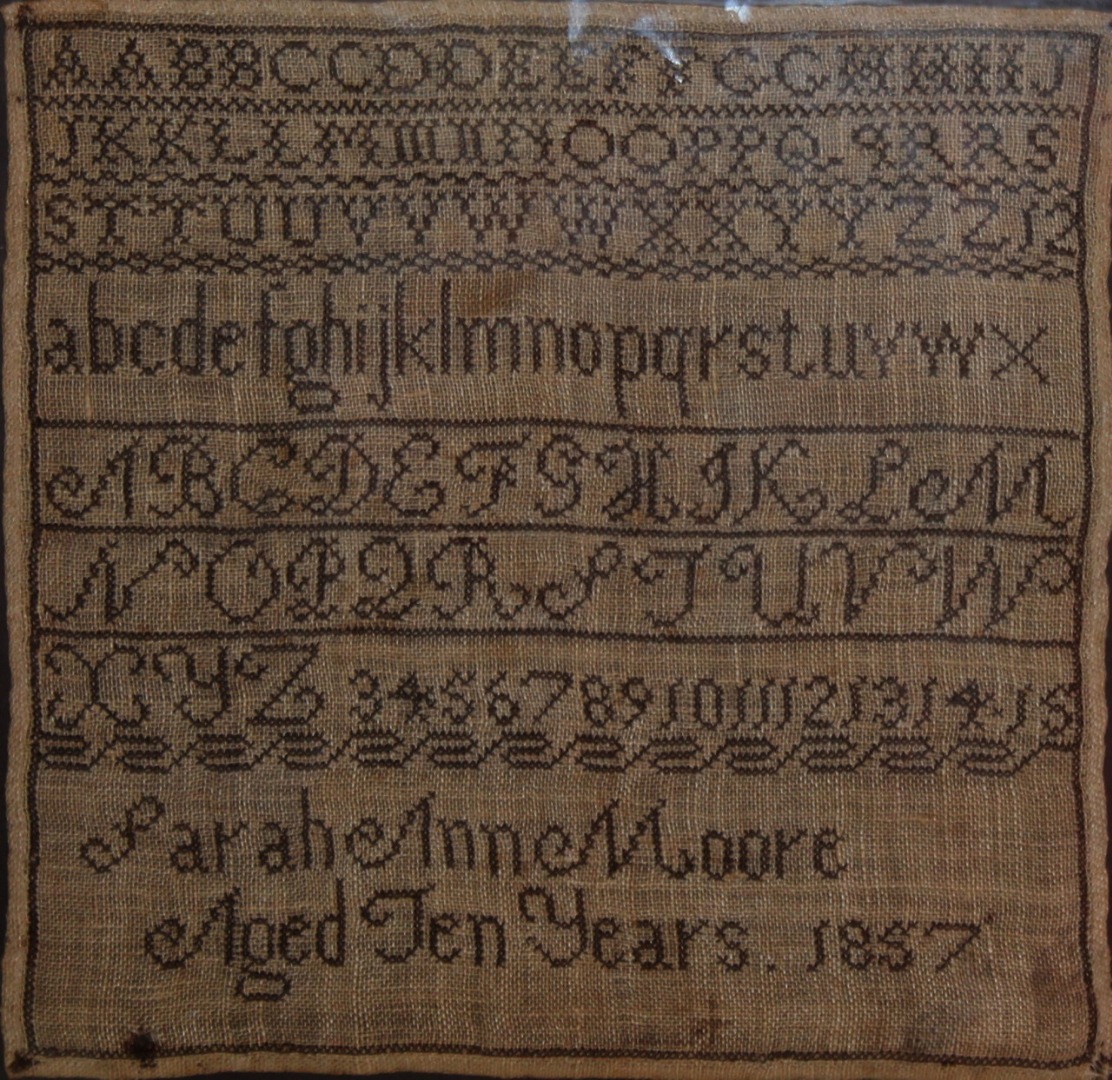 AABBCCDDEEFFGGHHIIJ
JKKLLMMNNOOPPQqRRS
STTUUVVWWXXYYZZ12
abcdefghijklmnopqrstuvwx
ABCDEFGHIKLM
NOPQRSTUVW
XYZ 3456789101112131415
Sarah Ann Moore
Aged Ten Years. 1857